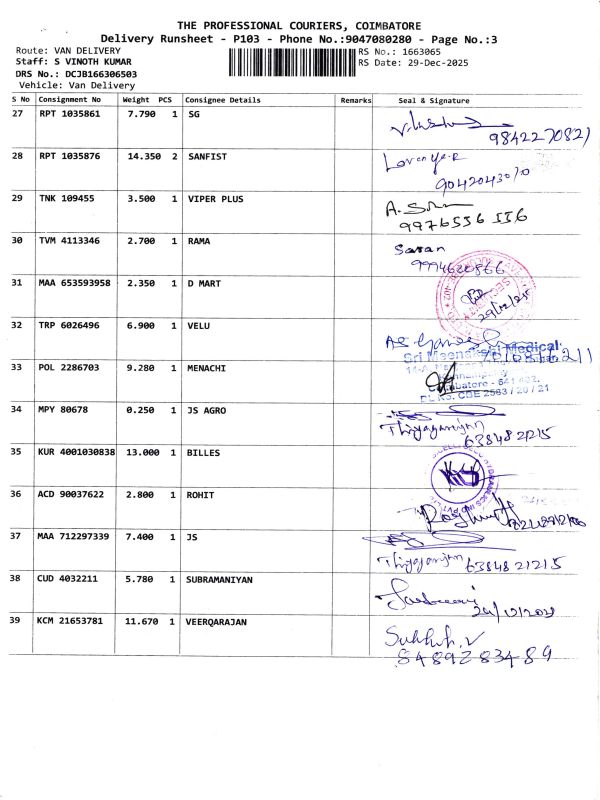 THE PROFESSIONAL COURIERS, COIMBATORE
Delivery Runsheet - P103 - Phone No.:9047080280 - Page No.:3
Route: VAN DELIVERY RS No.: 1663065
Staff: S VINOTH KUMAR RS Date: 29-Dec-2025
DRS No.: DCJB166306503
Vehicle: Van Delivery
S No Consignment No Weight PCS Consignee Details Remarks Seal & Signature
27 RPT 1035861 7.790 1 SG
9842270821
28 RPT 1035876 14.350 2 SANFIST
9042043070
29 TNK 109455 3.500 1 VIPER PLUS
9976556116
30 TVM 4113346 2.700 1 RAMA Saran
9994620866
31 MAA 653593958 2.350 1 D MART
29/12/25
32 TRP 6026496 6.900 1 VELU
Sri Meenakshi Medical
33 POL 2286703 9.280 1 MENACHI
Coimbatore - 641
DL No. CBE 2583 / 20 / 21
34 MPY 80678 0.250 1 JS AGRO
Thiyagarajan 6384821215
35 KUR 4001030838 13.000 1 BILLES
36 ACD 90037622 2.800 1 ROHIT
37 MAA 712297339 7.400 1 JS
Thiyagarajan 6384821215
38 CUD 4032211 5.780 1 SUBRAMANIYAN
39 KCM 21653781 11.670 1 VEERQARAJAN
8489283489